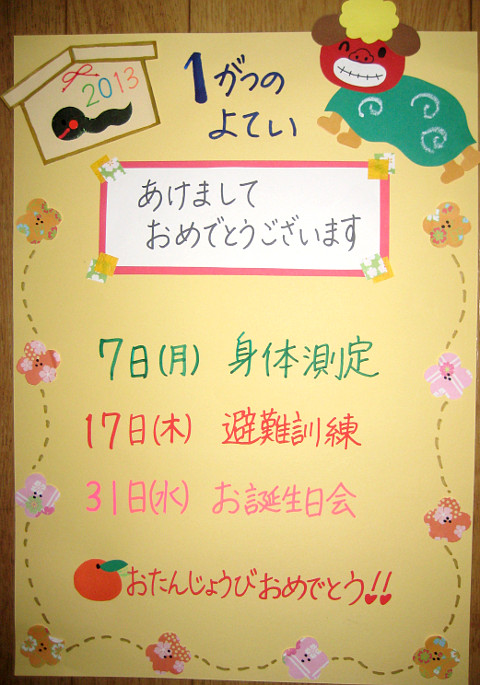 2013
1がつの
よてい
あけまして
おめでとうございます
7日(月) 身体測定
17日(木) 避難訓練
31日(水) お誕生日会
おたんじょうびおめでとう!!